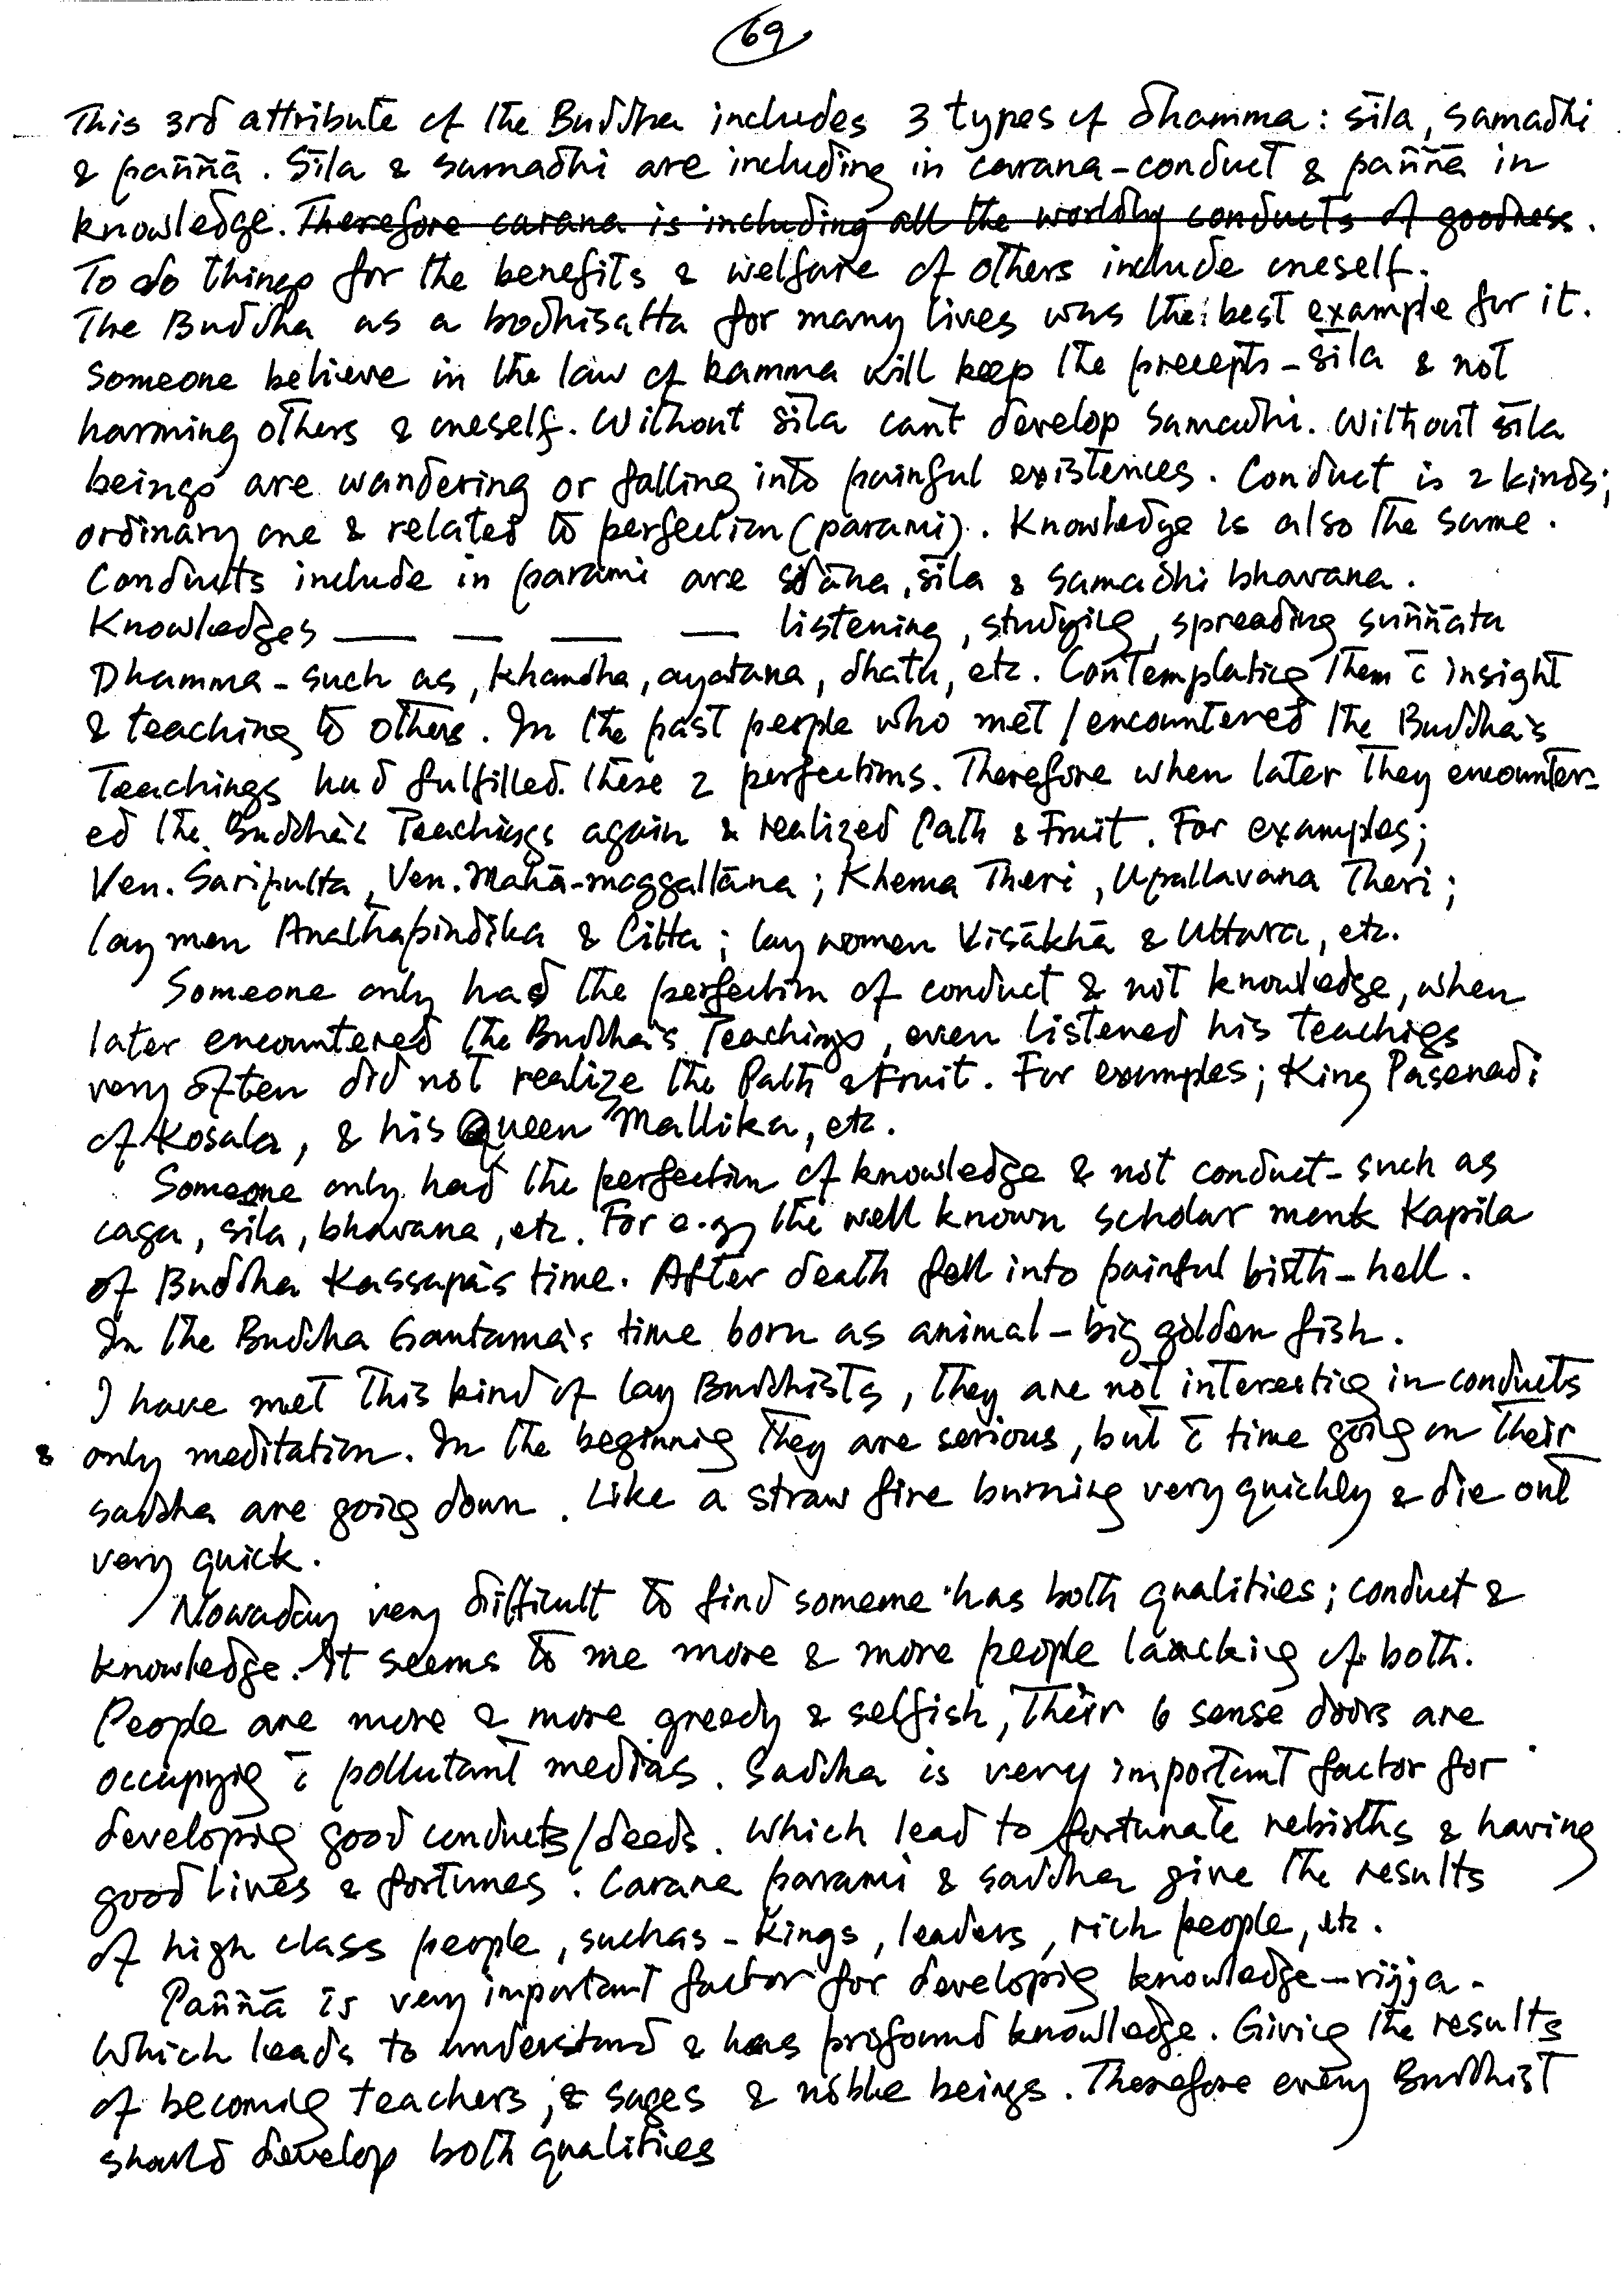 69
This 3rd attribute of the Buddha includes 3 types of dhamma: sīla, samadhi
& paññā. Sīla & samadhi are including in carana-conduct & paññā in
knowledge. Therefore carana is including all the worldly conducts of goodness.
To do things for the benefits & welfare of others include oneself.
The Buddha as a bodhisatta for many lives was the best example for it.
Someone believe in the law of kamma will keep the precepts-sīla & not
harming others & oneself. Without sīla can't develop samadhi. Without sīla
beings are wandering or falling into painful existences. Conduct is 2 kinds;
ordinary one & related to perfection (parami). Knowledge is also the same.
Conducts include in parami are dāna, sīla & samadhi bhavana.
Knowledges — — — — listening, studying, spreading suññāta
Dhamma - such as, khandha, ayatana, dhatu, etc. Contemplating them c̄ insight
& teaching to others. In the past people who met/encountered the Buddha's
Teachings had fulfilled these 2 perfections. Therefore when later they encounter-
ed the Buddha's Teachings again & realized Path & Fruit. For examples;
Ven. Saripulta, Ven. Mahā-moggallāna; Khema Theri, Upallavana Theri;
lay men Anathapindika & Citta; lay women Visākhā & Uttara, etc.
Someone only had the perfection of conduct & not knowledge, when
later encountered the Buddha's Teachings, even listened his teachigs
very often did not realize the Path & Fruit. For examples; King Pasenadi
of Kosala, & his Queen Mallika, etc.
Someone only had the perfection of knowledge & not conduct - such as
caga, sila, bhavana, etc. For e.g, the well known scholar monk Kapila
of Buddha Kassapa's time. After death fell into painful birth - hell.
In the Buddha Gautama's time born as animal - big golden fish.
I have met this kind of lay Buddhists, they are not interestig in conducts
& only meditation. In the beginnig they are serious, but c̄ time goig on their
saddha are goig down. Like a straw fire burning very quickly & die out
very quick.
Nowaday very difficult to find someone has both qualities; conduct &
knowledge. It seems to me more & more people lackig of both.
People are more & more greedy & selfish, their 6 sense doors are
occupyig c̄ pollutant medias. Saddha is very important factor for
developig good conducts/deeds. Which lead to fortunate rebirths & having
good lives & fortunes. Carana parami & saddha give the results
of high class people, such as - kings, leaders, rich people, etc.
Paññā is very important factor for developig knowledge - vijja.
Which leads to understand & has profound knowledge. Givig the results
of becomig teachers, & sages & noble beings. Therefore every Buddhist
should develop both qualities